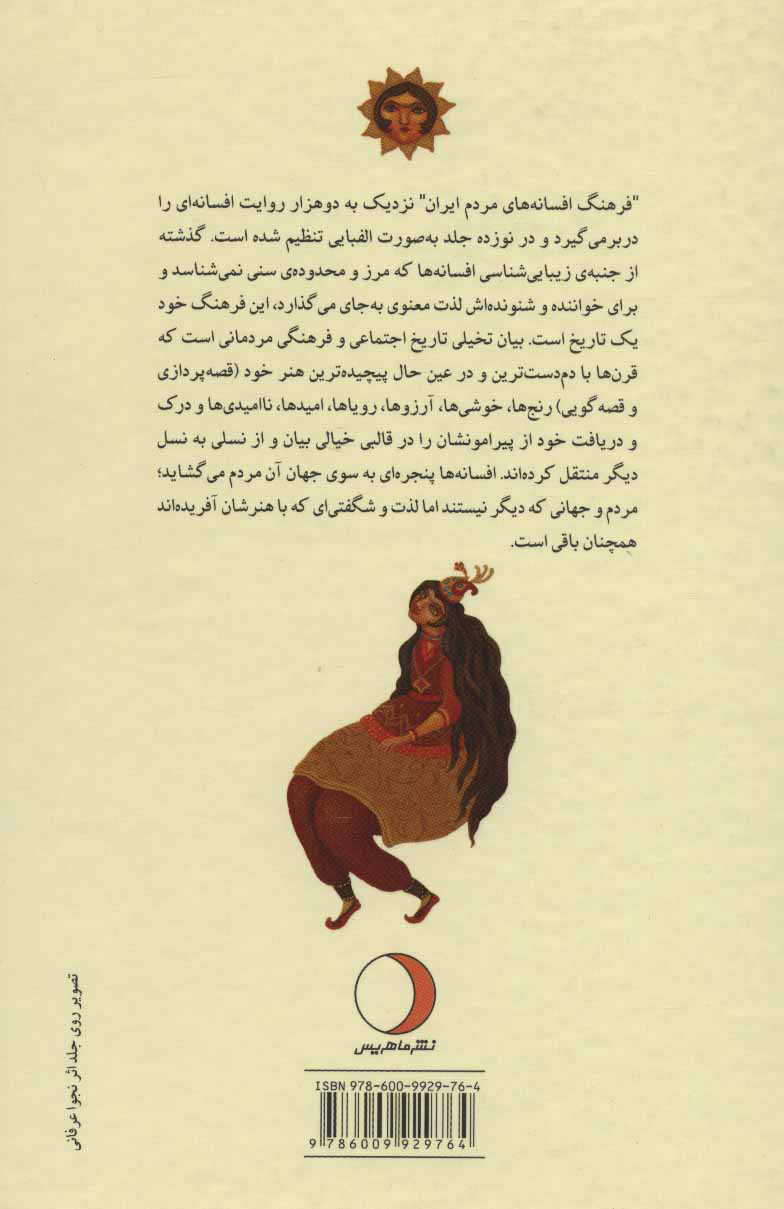 "فرهنگ افسانه‌های مردم ایران" نزدیک به دوهزار روایت افسانه‌ای را
دربرمی‌گیرد و در نوزده جلد به‌صورت الفبایی تنظیم شده است. گذشته
از جنبه‌ی زیبایی‌شناسی افسانه‌ها که مرز و محدوده‌ی سنی نمی‌شناسد و
برای خواننده و شنونده‌اش لذت معنوی به‌جای می‌گذارد، این فرهنگ خود
یک تاریخ است. بیان تخیلی تاریخ اجتماعی و فرهنگی مردمانی است که
قرن‌ها با دم‌دست‌ترین و در عین حال پیچیده‌ترین هنر خود (قصه‌پردازی
و قصه‌گویی) رنج‌ها، خوشی‌ها، آرزوها، رویاها، امیدها، ناامیدی‌ها و درک
و دریافت خود از پیرامونشان را در قالبی خیالی بیان و از نسلی به نسل
دیگر منتقل کرده‌اند. افسانه‌ها پنجره‌ای به سوی جهان آن مردم می‌گشاید؛
مردم و جهانی که دیگر نیستند اما لذت و شگفتی‌ای که با هنرشان آفریده‌اند
همچنان باقی است.
نشر ماهریس
تصویر روی جلد اثر نجوا عرفانی
ISBN 978-600-9929-76-4
9 786009 929764